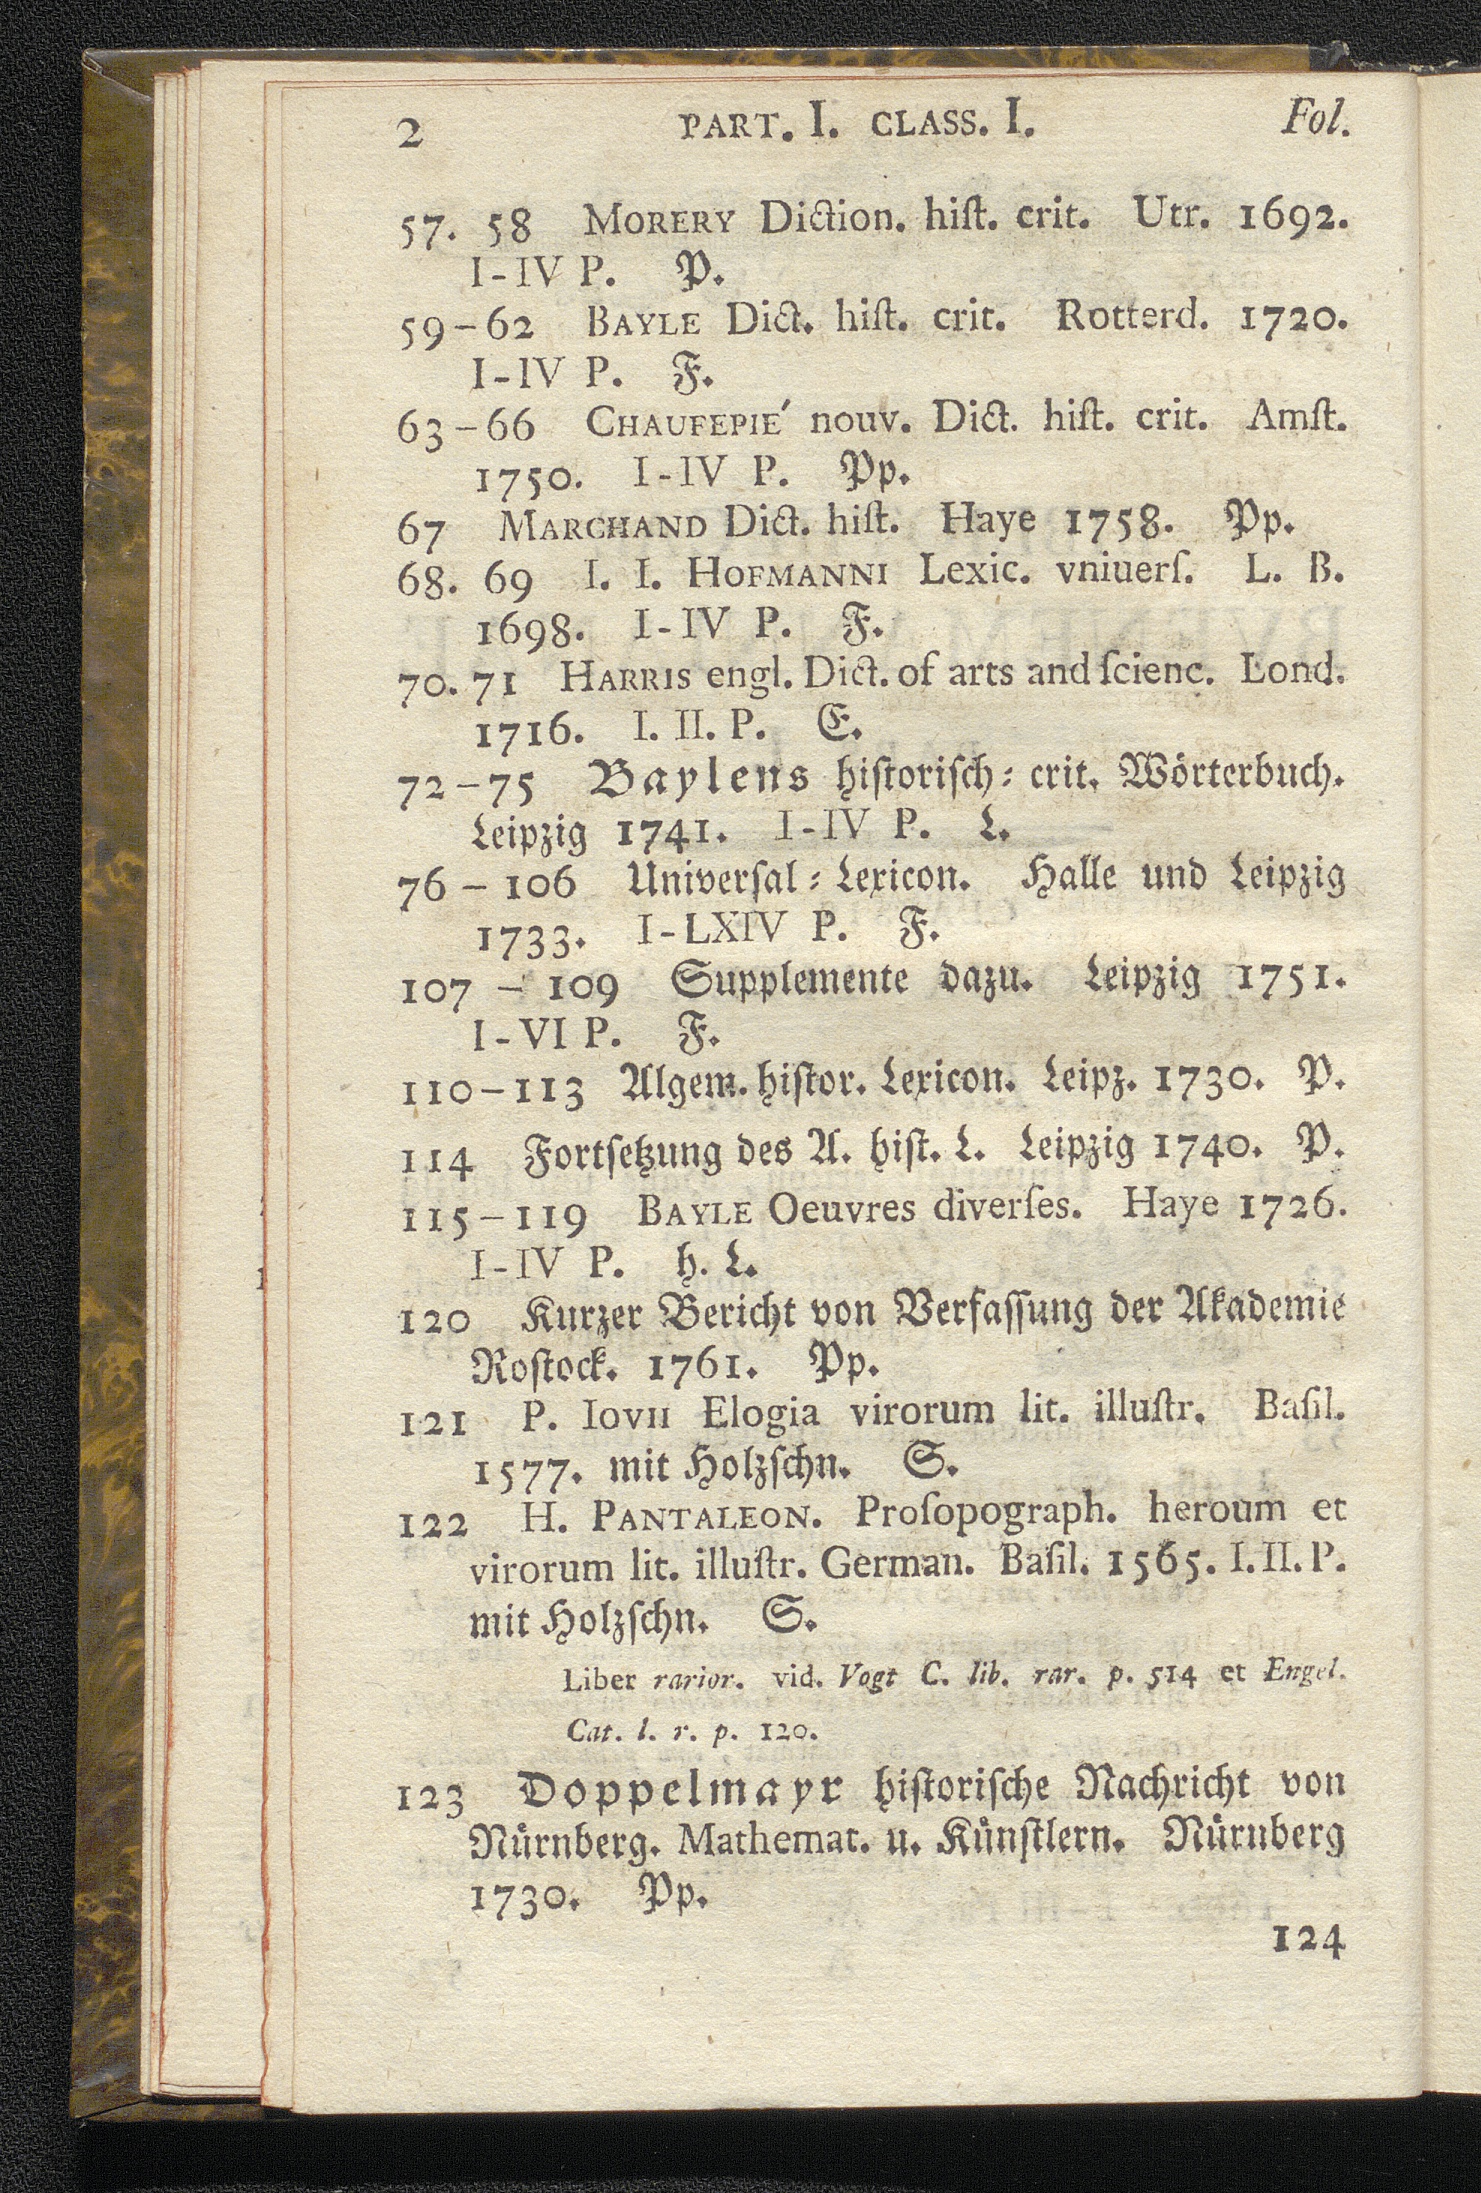 2 PART. I. CLASS. I. Fol.
57. 58 MORERY Diction. hiſt. crit. Utr. 1692.
I-IV P. P.
59-62 BAYLE Dict. hiſt. crit. Rotterd. 1720.
I-IV P. F.
63-66 CHAUFEPIE´ nouv. Dict. hiſt. crit. Amſt.
1750. I-IV P. Pp.
67 MARCHAND Dict. hiſt. Haye 1758. Pp.
68. 69 I. I. HOFMANNI Lexic. vniuerſ. L. B.
1698. I-IV P. F.
70. 71 HARRIS engl. Dict. of arts and ſcienc. Lond.
1716. I. II. P. E.
72-75 Baylens hiſtoriſch⸗crit. Wörterbuch.
Leipzig 1741. I-IV P. L.
76-106 Univerſal⸗Lexicon. Halle und Leipzig
1733. I-LXIV P. F.
107-109 Supplemente dazu. Leipzig 1751.
I-VI P. F.
110-113 Algem. hiſtor. Lexicon. Leipz. 1730. P.
114 Fortſetzung des A. hiſt. L. Leipzig 1740. P.
115-119 BAYLE Oeuvres diverſes. Haye 1726.
I-IV P. h. L.
120 Kurzer Bericht von Verfaſſung der Akademie
Roſtock. 1761. Pp.
121 P. IOVII Elogia virorum lit. illuſtr. Baſil.
1577. mit Holzſchn. S.
122 H. PANTALEON. Proſopograph. heroum et
virorum lit. illuſtr. German. Baſil. 1565. I. II. P.
mit Holzſchn. S.
Liber rarior. vid. Vogt C. lib. rar. p. 514 et Engel.
Cat. l. r. p. 120.
123 Doppelmayr hiſtoriſche Nachricht von
Nürnberg. Mathemat. u. Künſtlern. Nürnberg
1730. Pp.
124